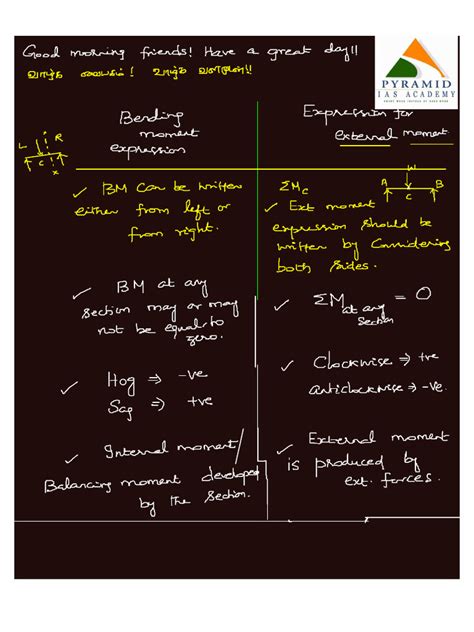 Good morning friends! Have a great day!!
வாழ்க வையகம்! வாழ்க வளமுடன்!!
PYRAMID
IAS ACADEMY
Bending moment expression
Expression for external moment
L R
C
x
BM can be written
either from left or
from right.
ΣMc
W
A B
C
Ext moment
expression should be
written by considering
both sides.
BM at any
section may or may
not be equal to
zero.
ΣM at any section = 0
Hog ⇒ -ve
Sag ⇒ +ve
Clockwise ⇒ +ve
Anticlockwise ⇒ -ve.
Internal moment/
Balancing moment developed
by the section.
External moment
is produced by
ext. forces.